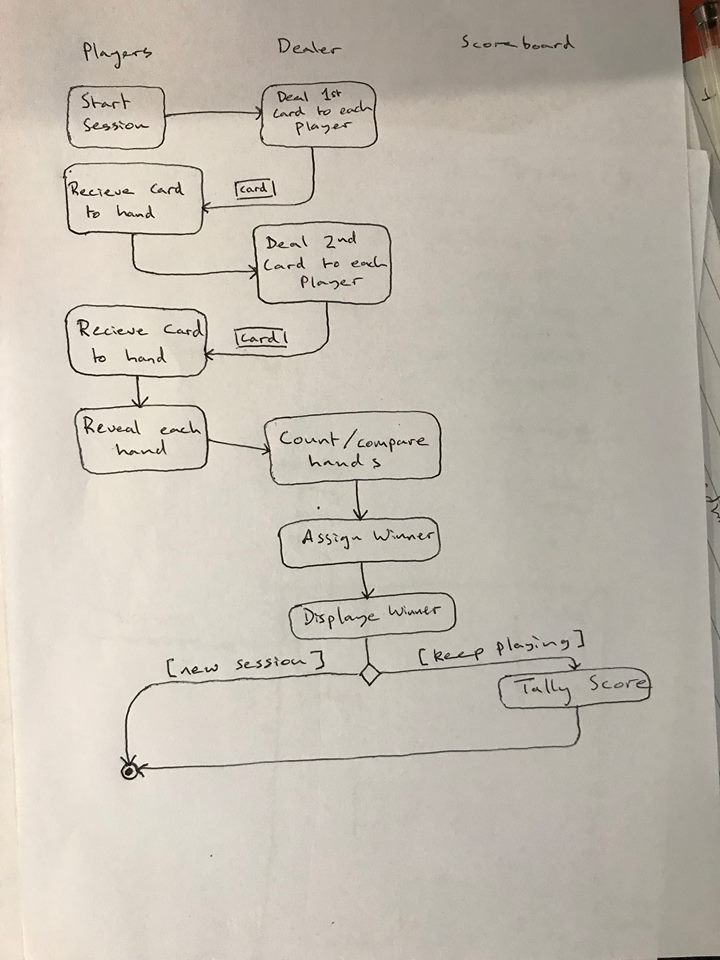 Players Dealer Scoreboard
Start
Session
Deal 1st
Card to each
Player
Recieve Card
to hand
card
Deal 2nd
Card to each
Player
Recieve Card
to hand
card
Reveal each
hand
Count/compare
hands
Assign Winner
Displaye Winner
[new session]
[keep playing]
Tally Score